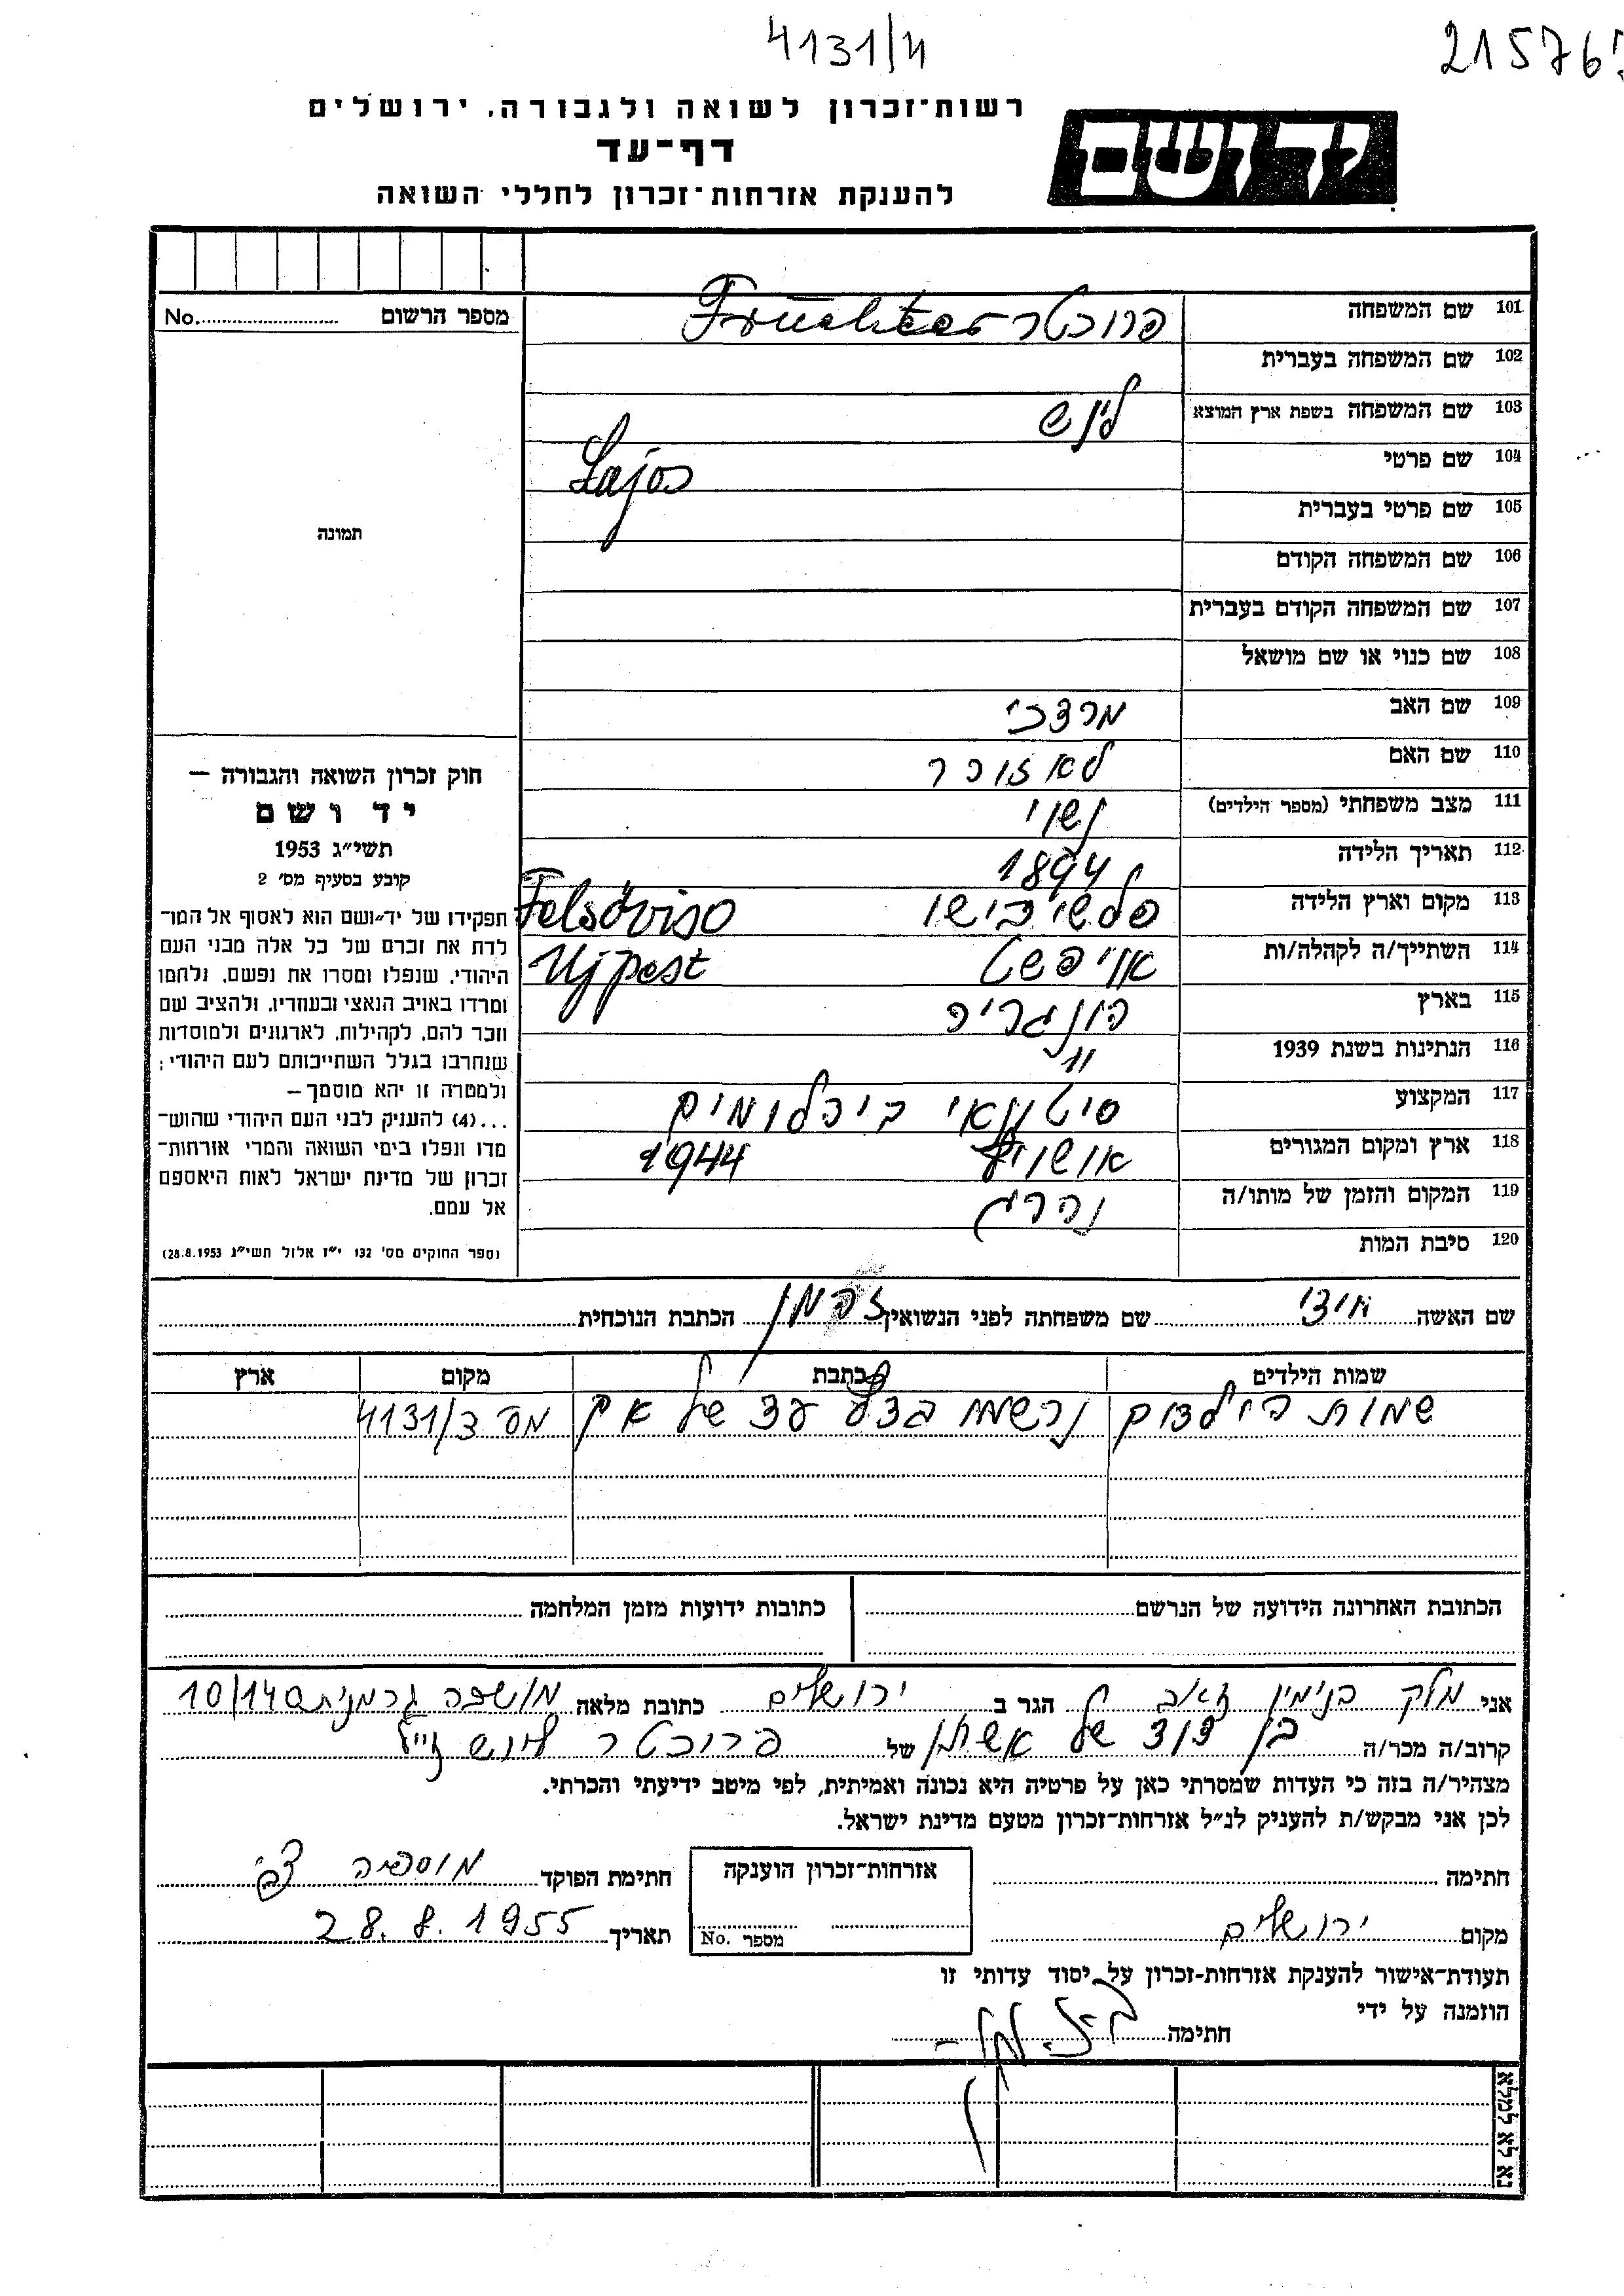 4131/4
215767
רשות־זכרון לשואה ולגבורה, ירושלים
יד ושם
דף־עד
להענקת אזרחות־זכרון לחללי השואה
101 שם המשפחה פרוכטר Fruchter
102 שם המשפחה בעברית
103 שם המשפחה בשפת ארץ המוצא
104 שם פרטי Lajos
105 שם פרטי בעברית
106 שם המשפחה הקודם
107 שם המשפחה הקודם בעברית
108 שם כנוי או שם מושאל
109 שם האב מרדכי
110 שם האם לאה
111 מצב משפחתי (מספר הילדים) נשוי
112 תאריך הלידה 1894
113 מקום וארץ הלידה Felsőviso
114 השתייך/ה לקהלה/ות אויפשט Ujpest
115 בארץ הונגריה
116 הנתינות בשנת 1939 "
117 המקצוע סיטונאי ביהלומים
118 ארץ ומקום המגורים אושויץ 1944
119 המקום והזמן של מותו/ה נהרג
120 סיבת המות
מספר הרשום No.
תמונה
חוק זכרון השואה והגבורה —
יד ושם
תשי״ג 1953
קובע בסעיף מס׳ 2
תפקידו של יד־ושם הוא לאסוף אל המו־
לדת את זכרם של כל אלה מבני העם
היהודי, שנפלו ומסרו את נפשם, נלחמו
ומרדו באויב הנאצי ובעוזריו, ולהציב שם
וזכר להם, לקהילות, לארגונים ולמוסדות
שנחרבו בגלל השתייכותם לעם היהודי;
ולמטרה זו יהא מוסמך—
...(4) להעניק לבני העם היהודי שהוש־
מדו ונפלו בימי השואה והמרי אזרחות־
זכרון של מדינת ישראל לאות היאספם
אל עמם.
(ספר החוקים מס׳ 132 י״ז אלול תשי״ג 28.8.1953)
שם האשה שם משפחתה לפני הנשואין הכתבת הנוכחית
שמות הילדים כתבת מקום ארץ
שמות הילדים נרשמו בדף עד של אם מס ד/4131
הכתובת האחרונה הידועה של הנרשם כתובות ידועות מזמן המלחמה
אני מלק בנימין זאב הגר ב ירושלים כתובת מלאה מושבה גרמנית 10/140
קרוב/ה מכר/ה בן דוד של אשתו של פרוכטר לויש
מצהיר/ה בזה כי העדות שמסרתי כאן על פרטיה היא נכונה ואמיתית, לפי מיטב ידיעתי והכרתי.
לכן אני מבקש/ת להעניק לנ״ל אזרחות־זכרון מטעם מדינת ישראל.
חתימה אזרחות־זכרון הוענקה חתימת הפוקד
מקום ירושלים מספר No. תאריך 28.8.1955
תעודת־אישור להענקת אזרחות־זכרון על יסוד עדותי זו
הוזמנה על ידי
חתימה
נא לא למלא